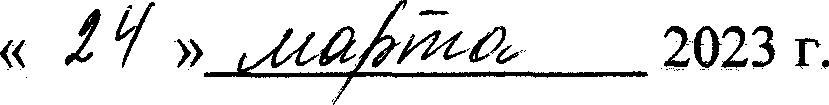 « 24 » марта 2023 г.